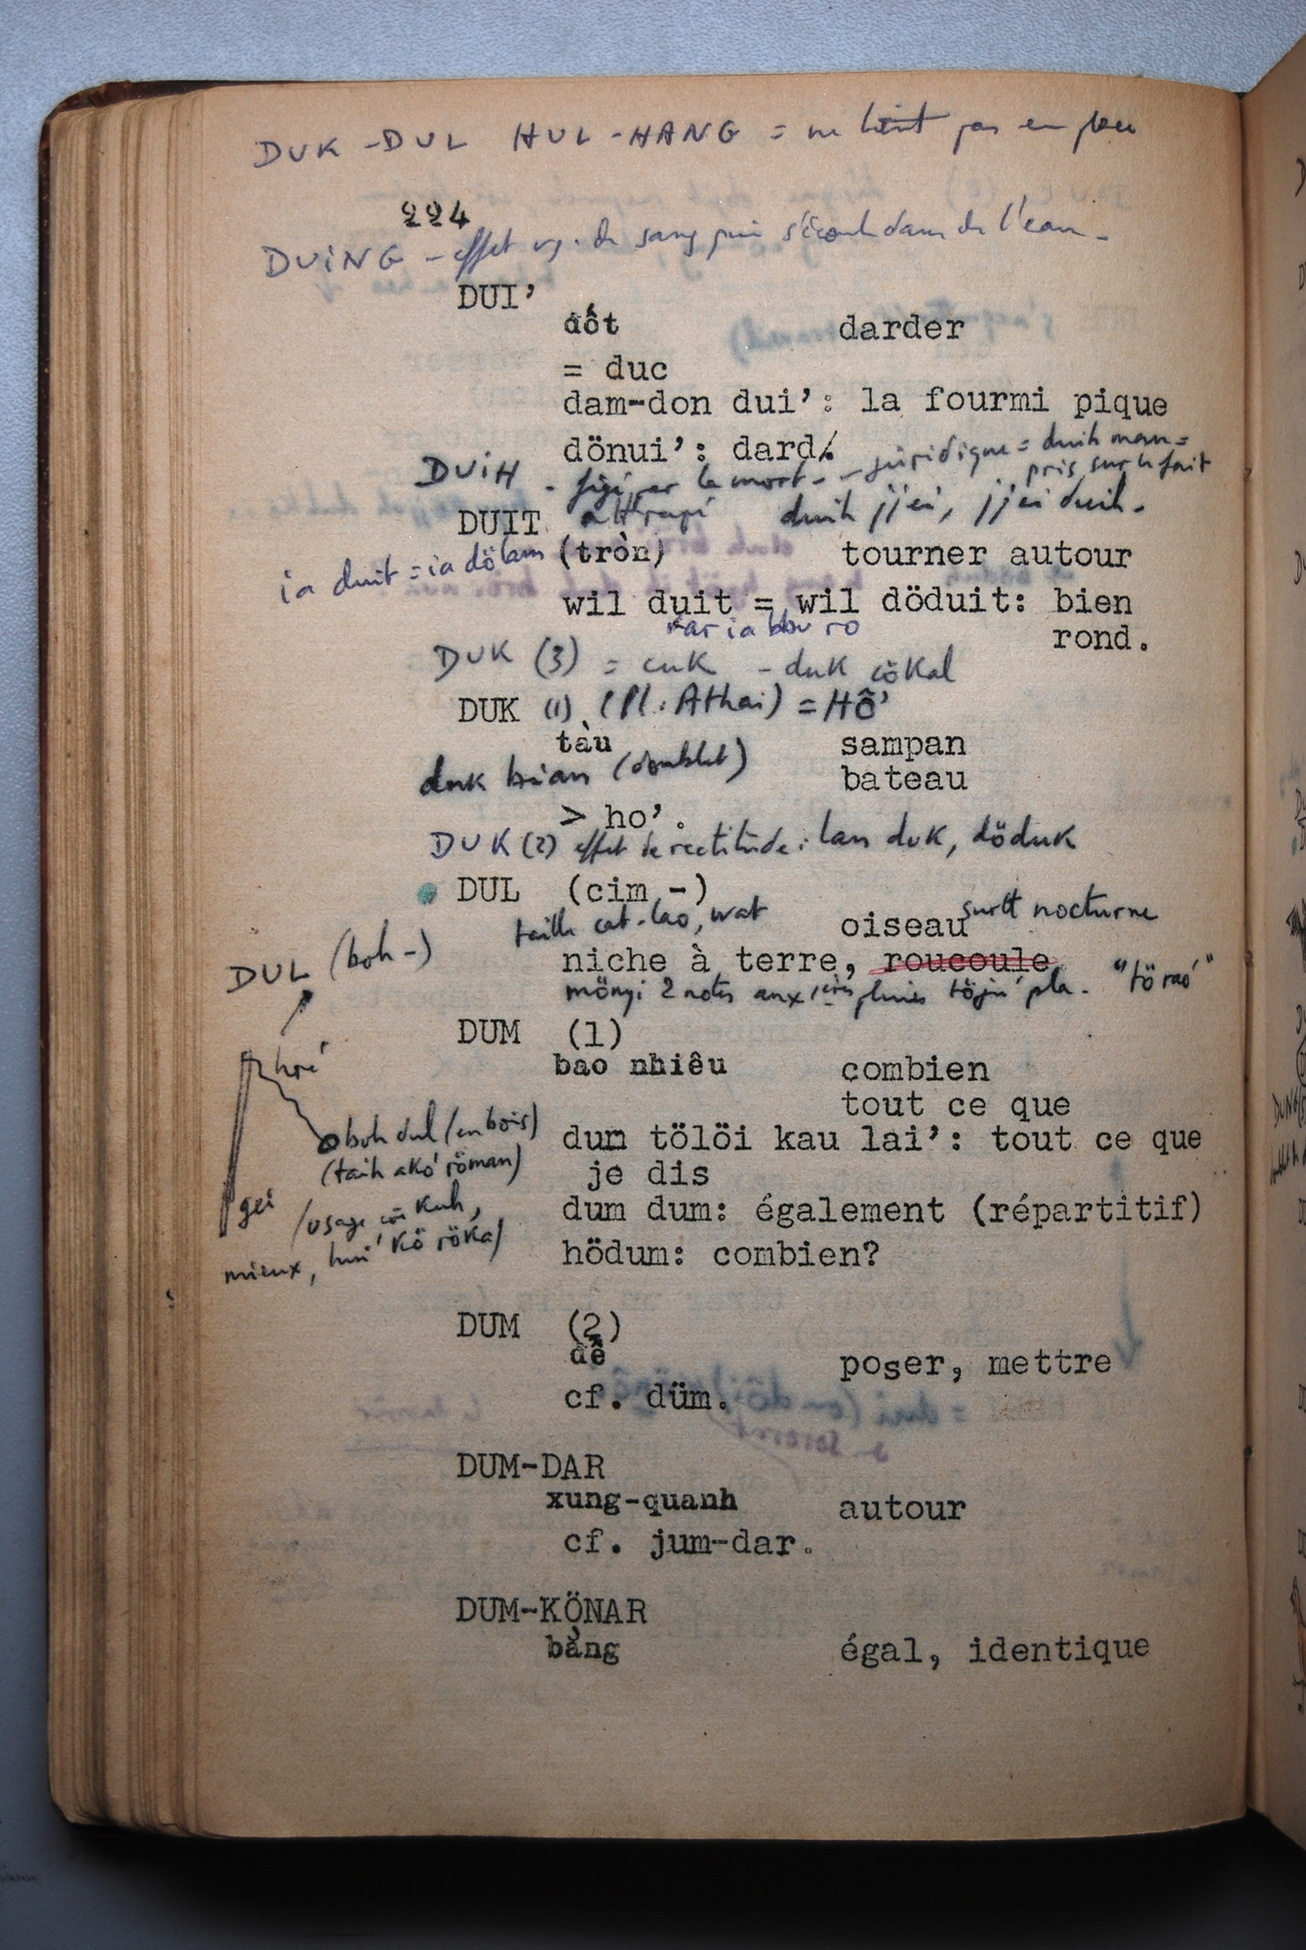 DUK - DUL HUL - HANG = ne tient pas en place
224
DUING - effet vg. de sang qui s'écoule dans de l'eau -
DUI’
đốt darder
= duc
dam-don dui’: la fourmi pique
dönui’: dard.
DUIH - figé par la mort - - juridique = duih man =
pris sur le fait
attrapé duih jj'ei, jj'ei duih.
DUIT
ia duit = ia dölam (tròn) tourner autour
wil duit = wil döduit: bien
rond.
DUK (3) = cuk - duk cökal
DUK (1) (Pl. Athai) = HÔ’
tàu sampan
duk (doublet) bateau
> ho’.
DUK (2) effet de rectitude: lan duk, döduk
DUL (cim -)
taille cat-lao, wat oiseau surtt nocturne
DUL (boh -)
niche à terre, roucoule
mönyi 2 notes aux 1ères pluies pla. "töraó"
DUM (1)
hré
bao nhiêu combien
tout ce que
boh dul (en bois)
dum tölöi kau lai’: tout ce que
(taih akó röman)
je dis
gei
(usage kuh,
dum dum: également (répartitif)
mieux, kö röka)
hödum: combien?
DUM (2)
để poser, mettre
cf. düm.
DUM-DAR
xung-quanh autour
cf. jum-dar.
DUM-KÖNAR
bằng égal, identique